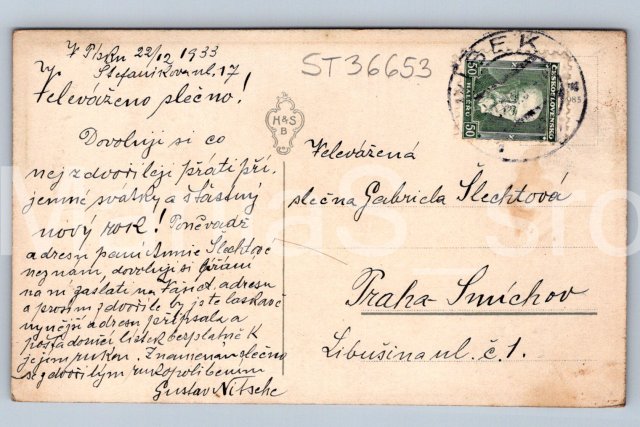 V Písku 22/12 1933
Štefánikova ul. 17
Velevážená slečno!
Dovoluji si co
nejzdvořileji přáti pří-
jemné svátky a šťastný
nový rok! Poněvadž
adresu paní Annie Šlechtové
neznám, dovoluji si přání
na ni zaslati na Vaši adresu
a prosím zdvořile by jste laskavě
nynější adresu připsala a
lístek bezplatně k
jejím rukou. Znamenám slečno
se zdvořilým rukopolíbením
Gustav Nitsche
ST36653
H&S
B
PÍSEK
ČESKOSLOVENSKO
50 HALÉŘŮ 50
Velevážená
slečna Gabriela Šlechtová
Praha-Smíchov
Libušina ul. č. 1.